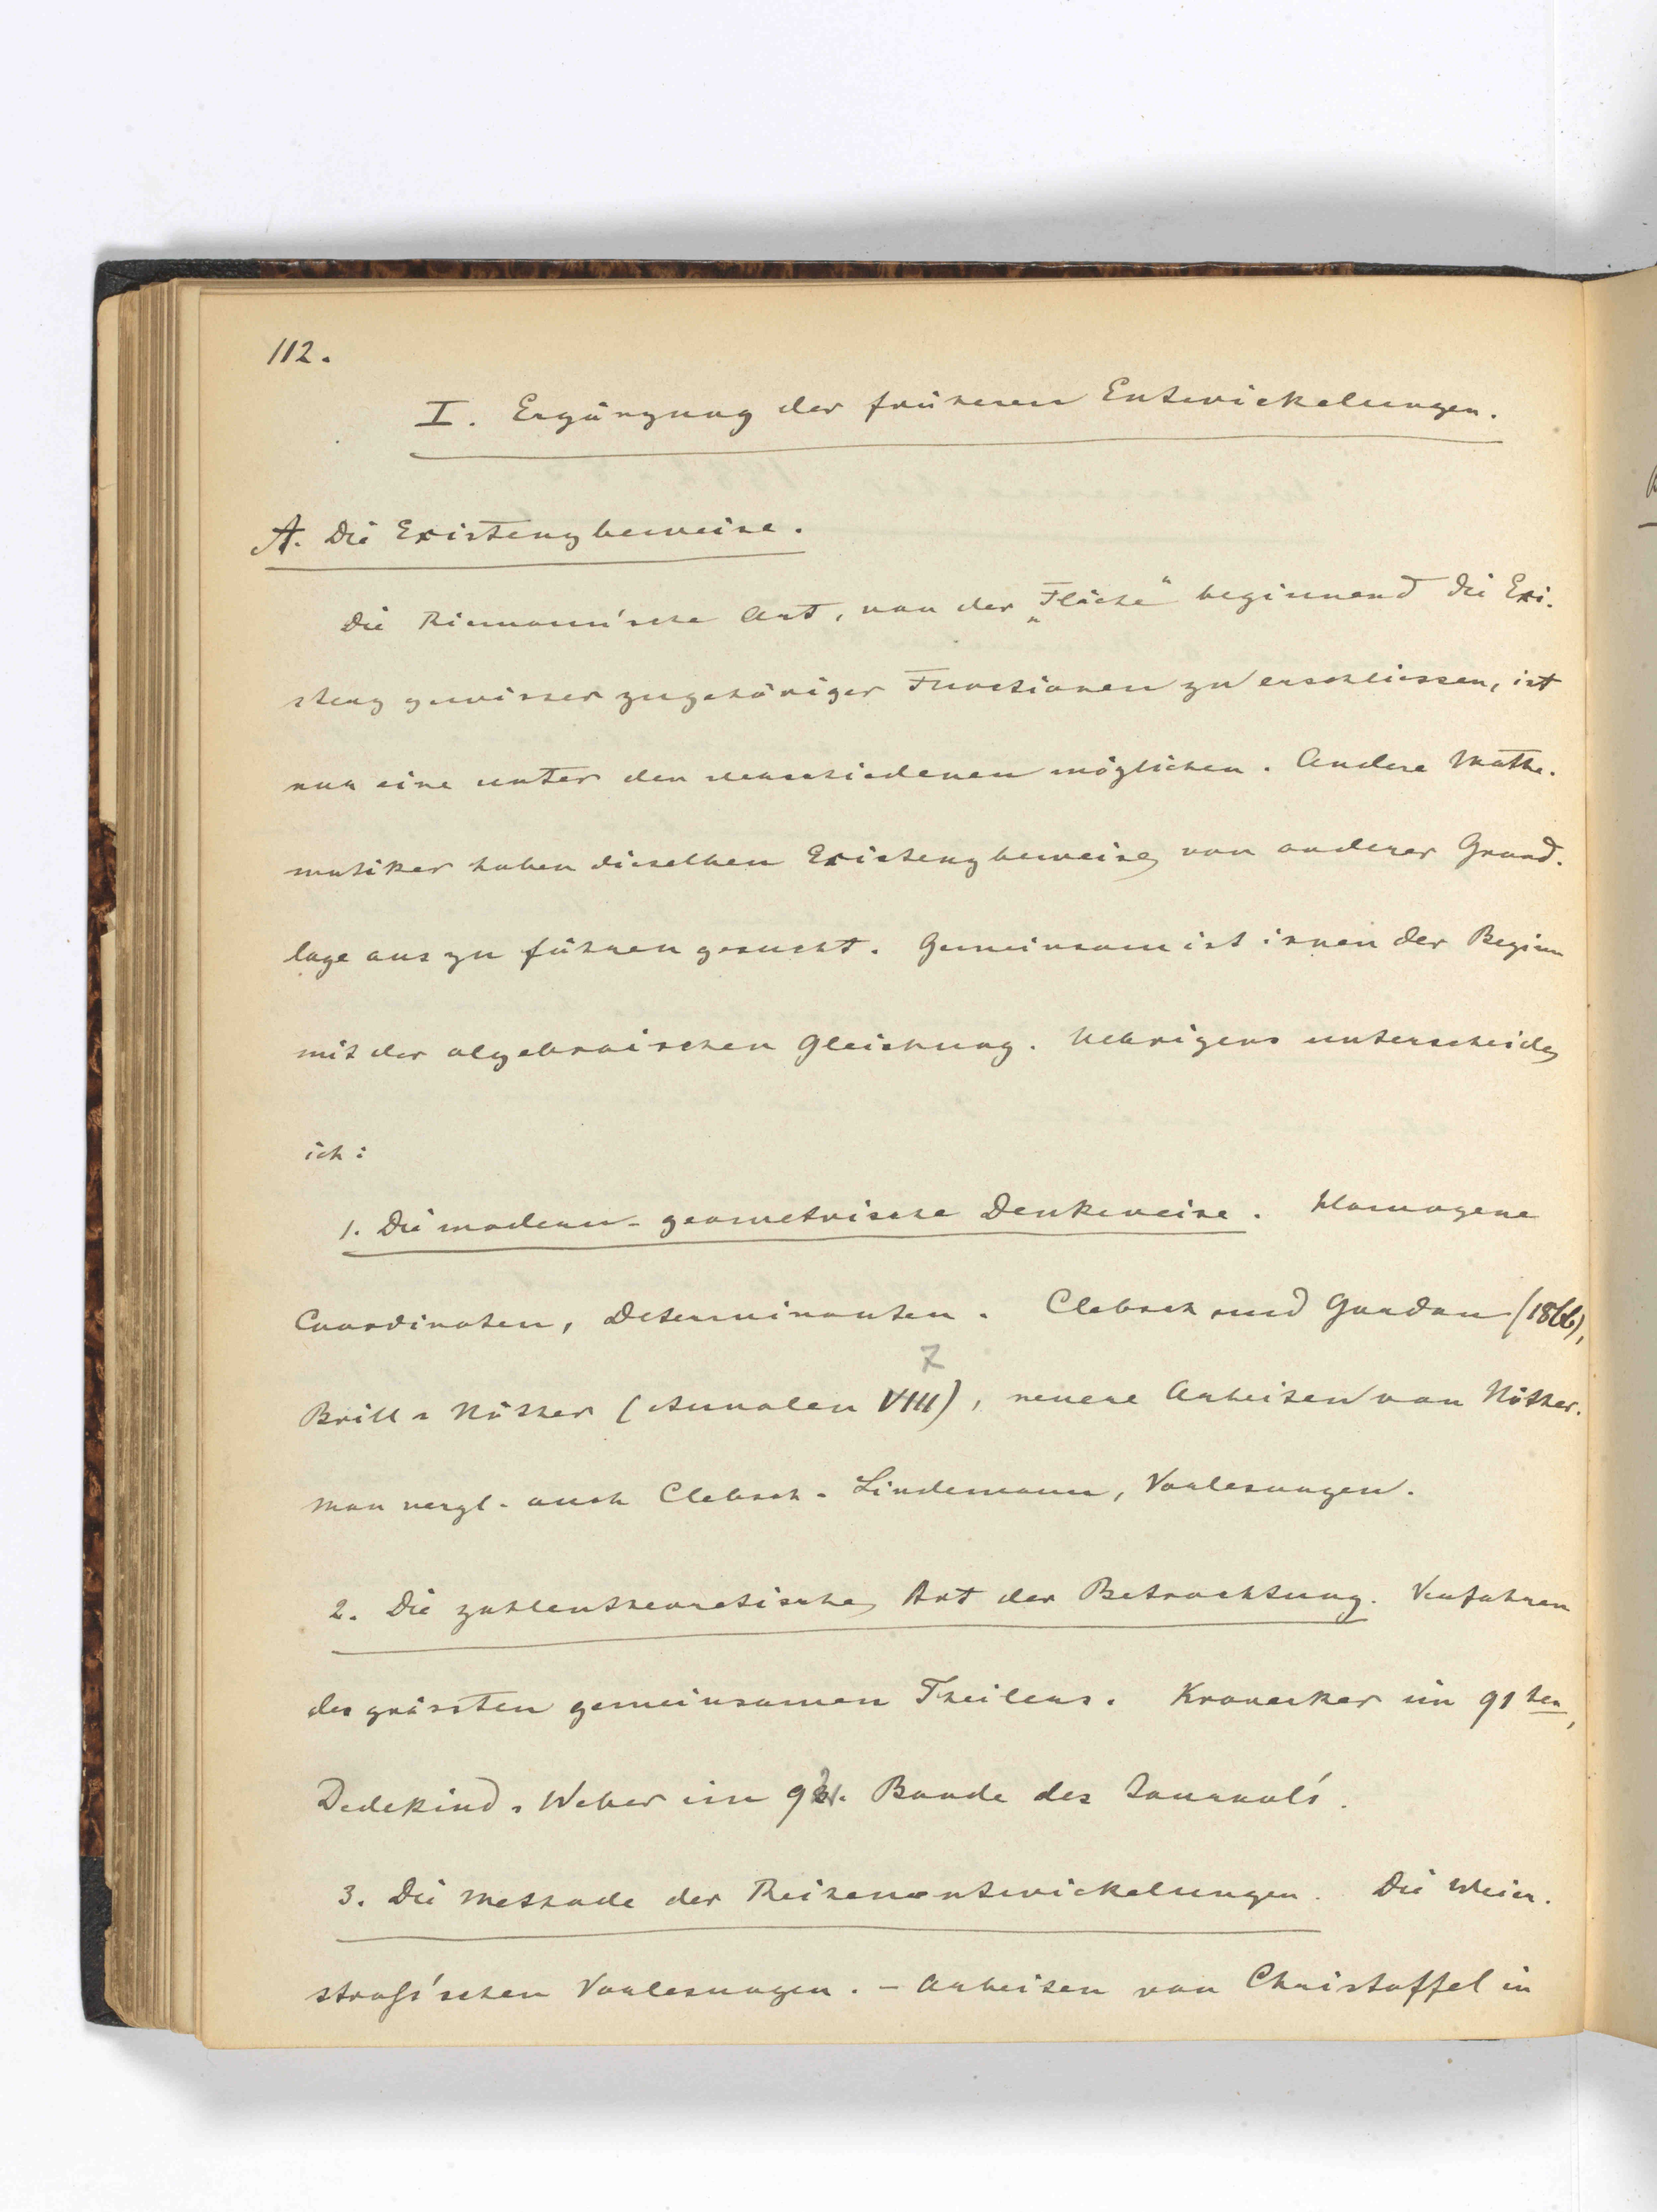 112.
I. Ergänzung der früheren Entwickelungen.
A. Die Existenzbeweise.
Die Riemann'sche Art, von der „Fläche“ beginnend die Exi-
stenz gewisser zugehöriger Functionen zu erschliessen, ist
nur eine unter den verschiedenen möglichen. Andere Mathe-
matiker haben dieselben Existenzbeweise von anderer Grund-
lage aus zu führen gesucht. Gemeinsam ist ihnen der Beginn
mit der algebraischen Gleichung. Uebrigens unterscheide
ich:
1. Die modern-geometrische Denkweise. Homogene
Coordinaten, Determinanten. Clebsch und Gordan (1866),
7
Brill-Nöther (Annalen VIII), neuere Arbeiten von Nöther.
Man vergl. auch Clebsch-Lindemann, Vorlesungen.
2. Die zahlentheoretische Art der Betrachtung. Verfahren
des grössten gemeinsamen Theilers. Kronecker im 91ten,
Dedekind-Weber im 92. Bande des Journals.
3. Die Methode der Reihenentwickelungen. Die Weier-
straß'schen Vorlesungen. – Arbeiten von Christoffel in